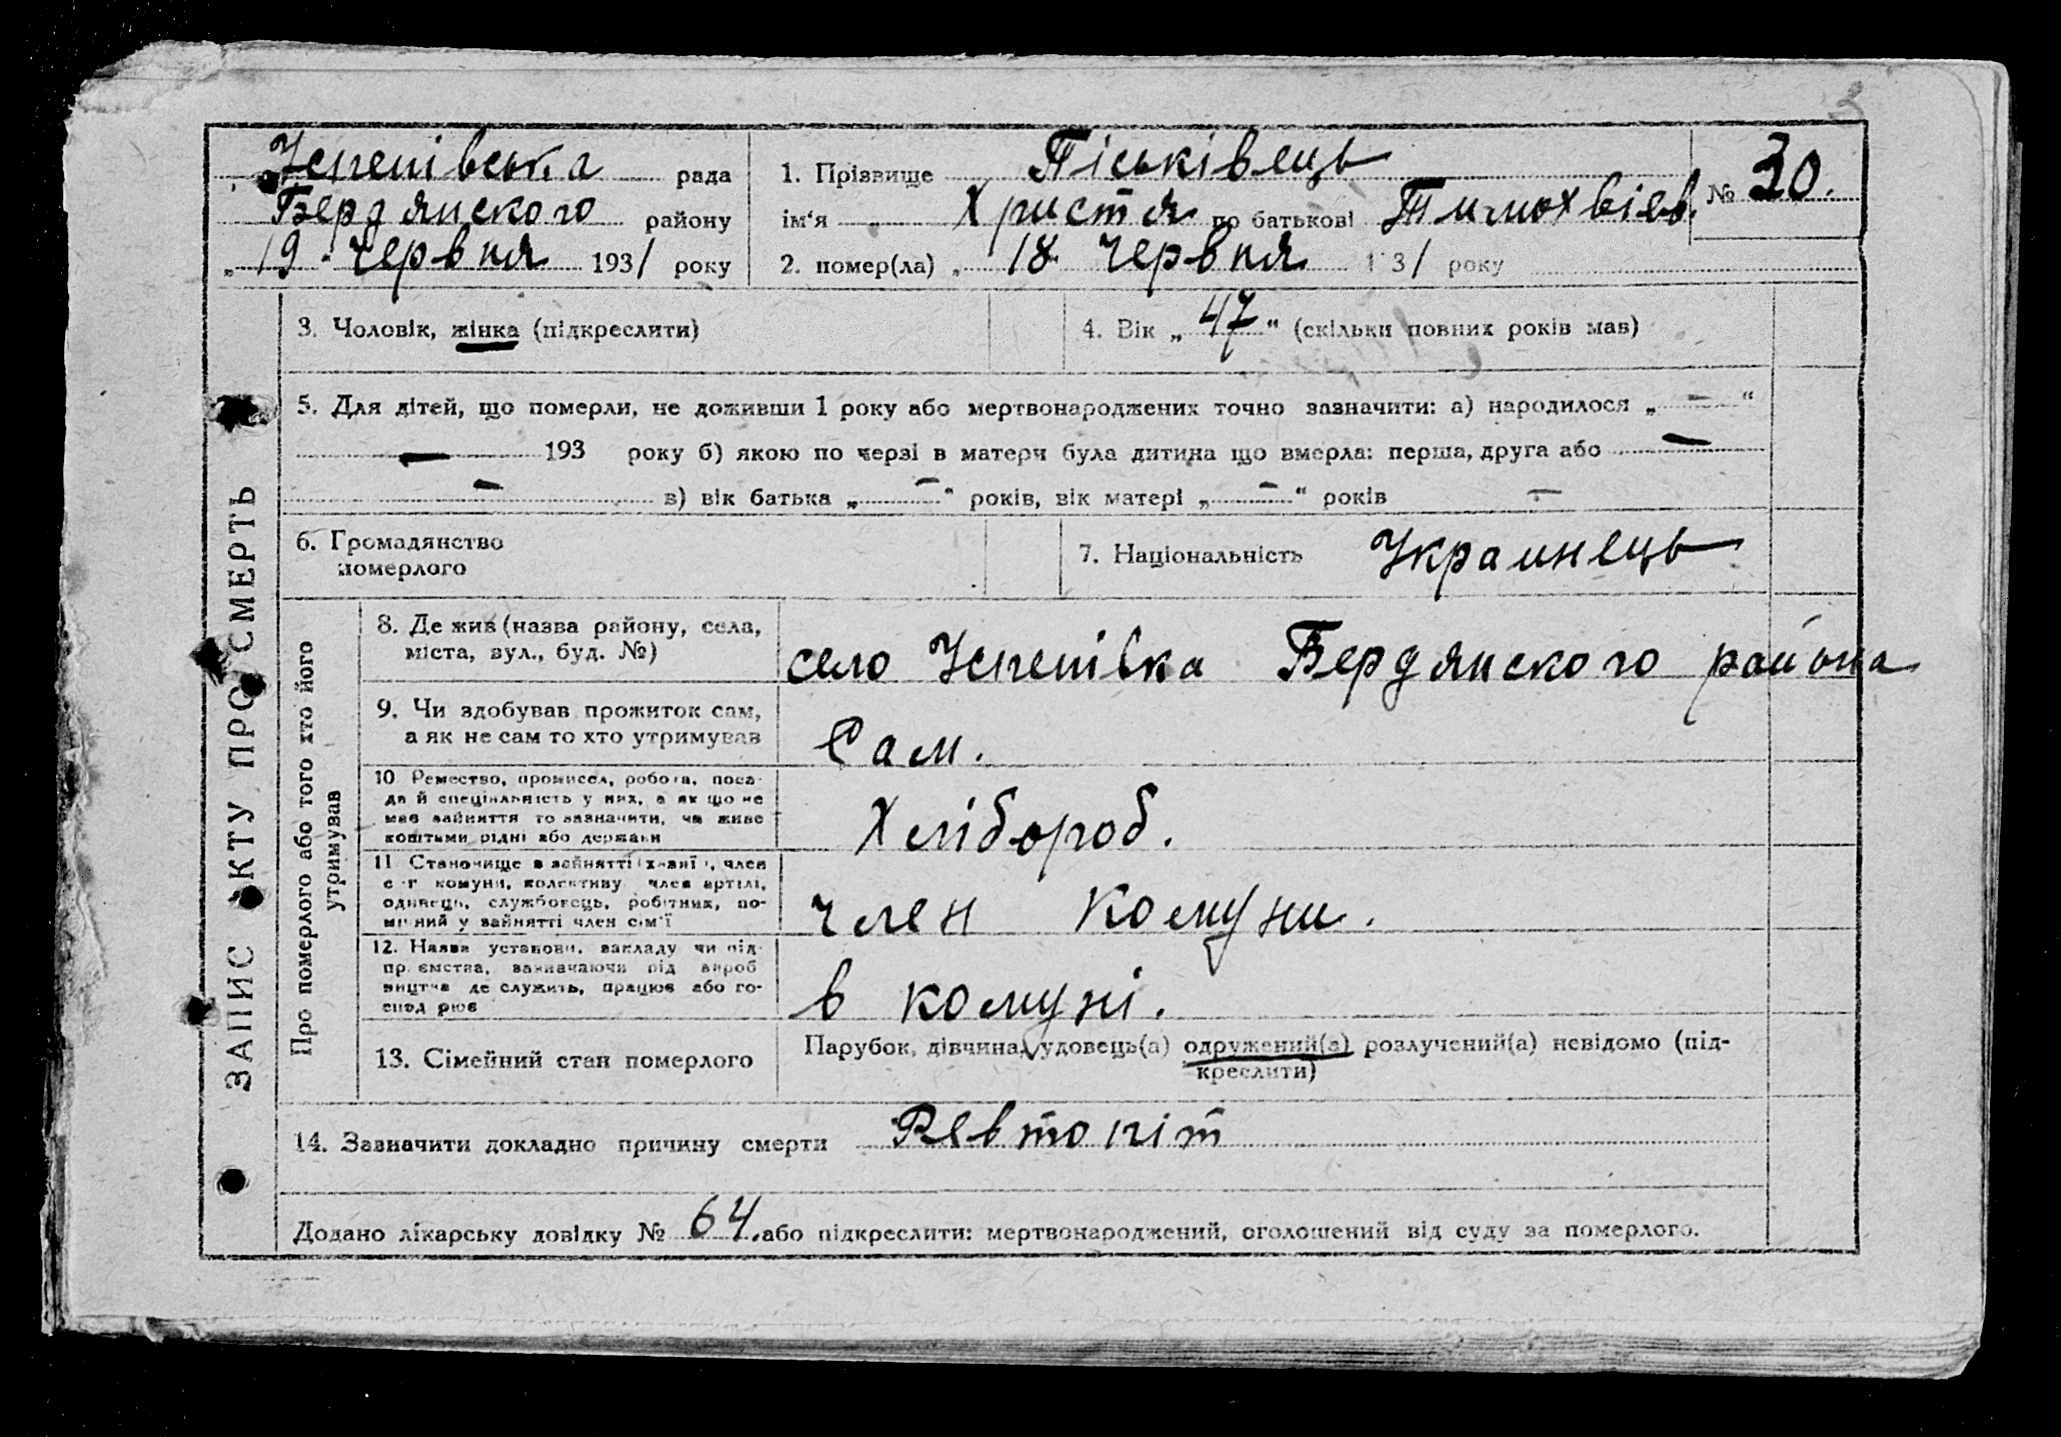 2
Успенівська рада
Бердянского району
„19" червня 1931 року
1. Прізвище Піськівець
ім'я Христя по батькові Тимохвієв.
№ 30.
2. помер(ла) „ 18 червня 1 31 року
ЗАПИС АКТУ ПРО СМЕРТЬ
3. Чоловік, жінка (підкреслити)
4. Вік „47" (скільки повних років мав)
5. Для дітей, що померли, не доживши 1 року або мертвонароджених точно зазначити: а) народилося „ — "
— 193 року б) якою по черзі в матери була дитина що вмерла: перша, друга або —
— в) вік батька „ — " років, вік матері „ — " років —
6. Громадянство
померлого
7. Національність Украинець
Про померлого або того хто його
утримував
8. Де жив (назва району, села,
міста, вул., буд. №)
село Успенівка Бердянского района
9. Чи здобував прожиток сам,
а як не сам то хто утримував
Сам.
10 Ремество, промисел, робота, поса-
да й спеціяльність у них, а як що не
мав зайняття то зазначити, чи живе
коштами рідні або держави
Хлібороб.
11 Становище в зайнятті (хазяїн, член
с-г комуни, колективу член артілі,
одинець, службовець, робітник, по-
мічний у зайнятті член сім'ї
член комуни.
12. Назва установи, закладу чи під-
приємства, зазначаючи від вироб
ництва де служить, працює або го-
сподарює
в комуні.
13. Сімейний стан померлого
Парубок, дівчина, удовець(а) одружений(а) розлучений(а) невідомо (під-
креслити)
14. Зазначити докладно причину смерти Ревтокіт
Додано лікарську довідку № 64. або підкреслити: мертвонароджений, оголошений від суду за померлого.